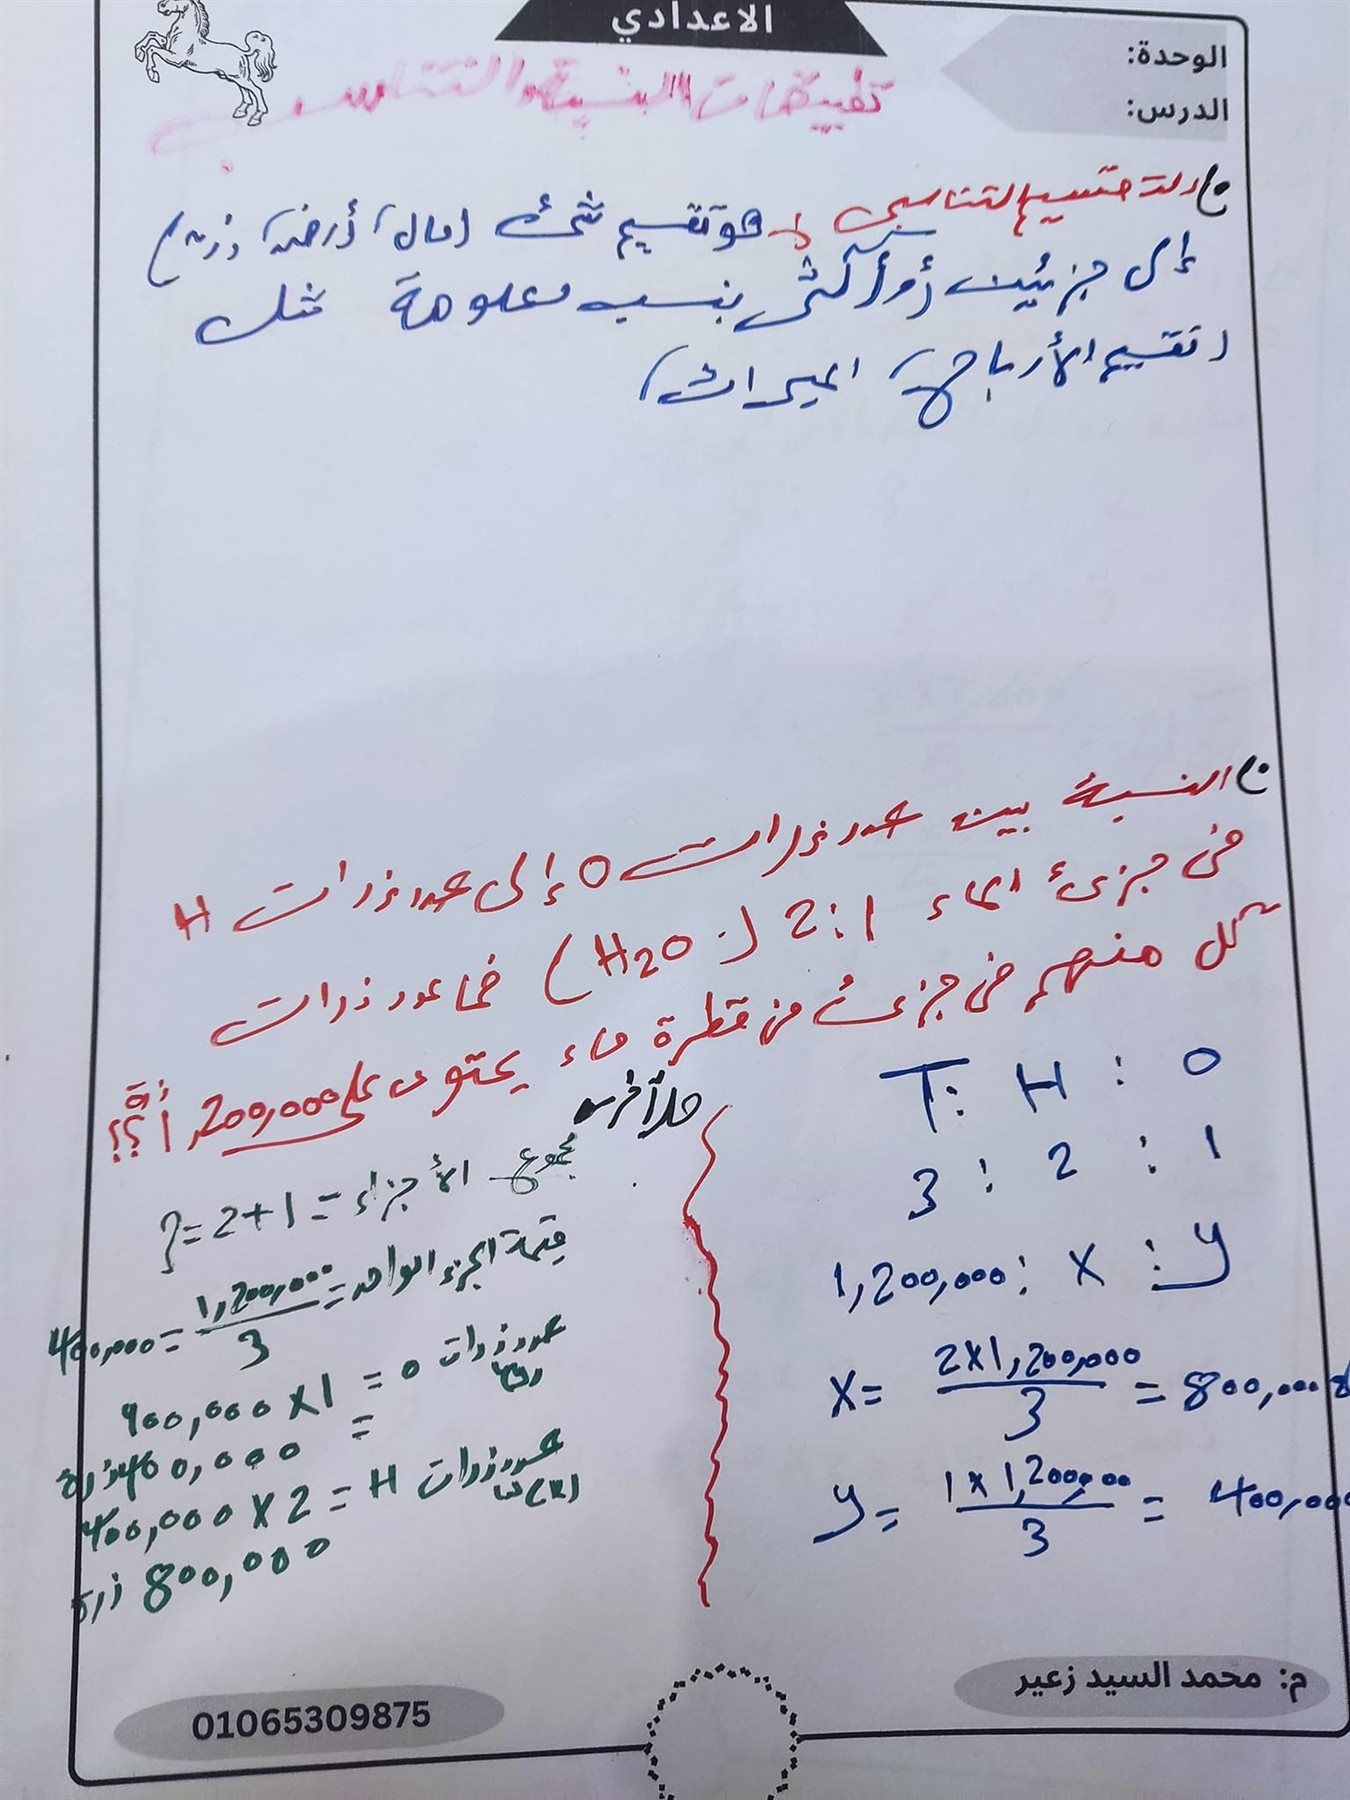 الاعدادي
الوحدة:
الدرس:
تطبيقات النسبة والتناسب
التقسيم التناسبي هو تقسيم شئ (مال، أرض، زرع)
إلى جزئين (أو أكثر) بنسب معلومة مثل
(تقسيم الأرباح، الميراث)
النسبة بين عدد ذرات O إلى عدد ذرات H
في جزئ الماء 2:1 (H2O) فما عدد ذرات
كل منهم في جزئ من قطرة ماء يحتوى على 1,200,000 ذرة؟؟
T : H : O
3 : 2 : 1
1,200,000 : X : y
X = 2×1,200,000 / 3 = 800,000
y = 1×1,200,000 / 3 = 400,000
حل آخر
مجموع الأجزاء = 2+1 = 3
قيمة الجزء الواحد = 1,200,000 / 3 = 400,000
عدد ذرات O = 400,000 ×1
= 400,000 ذرة
عدد ذرات H = 400,000 ×2
800,000 ذرة
م: محمد السيد زعير
01065309875